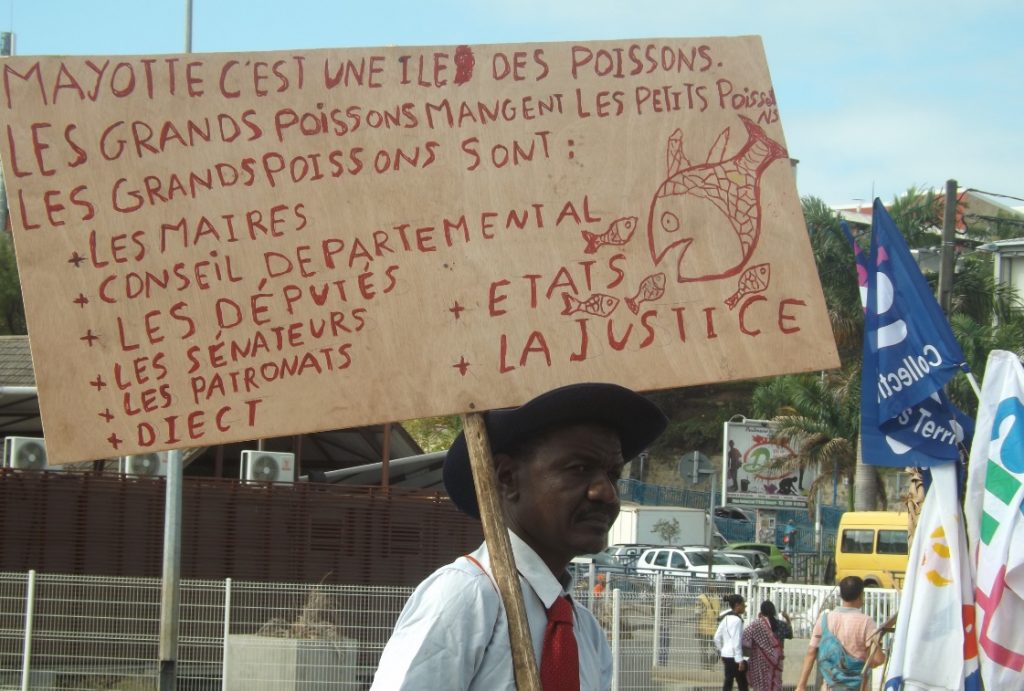 MAYOTTE C'EST UNE ILES DES POISSONS.
LES GRANDS POISSONS MANGENT LES PETITS POISSONS
LES GRANDS POISSONS SONT :
+ LES MAIRES
+ CONSEIL DEPARTEMENTAL
+ LES DÉPUTÉS
+ LES SÉNATEURS
+ LES PATRONATS
+ DIECT
+ ETATS
+ LA JUSTICE
Collecti
s Terri